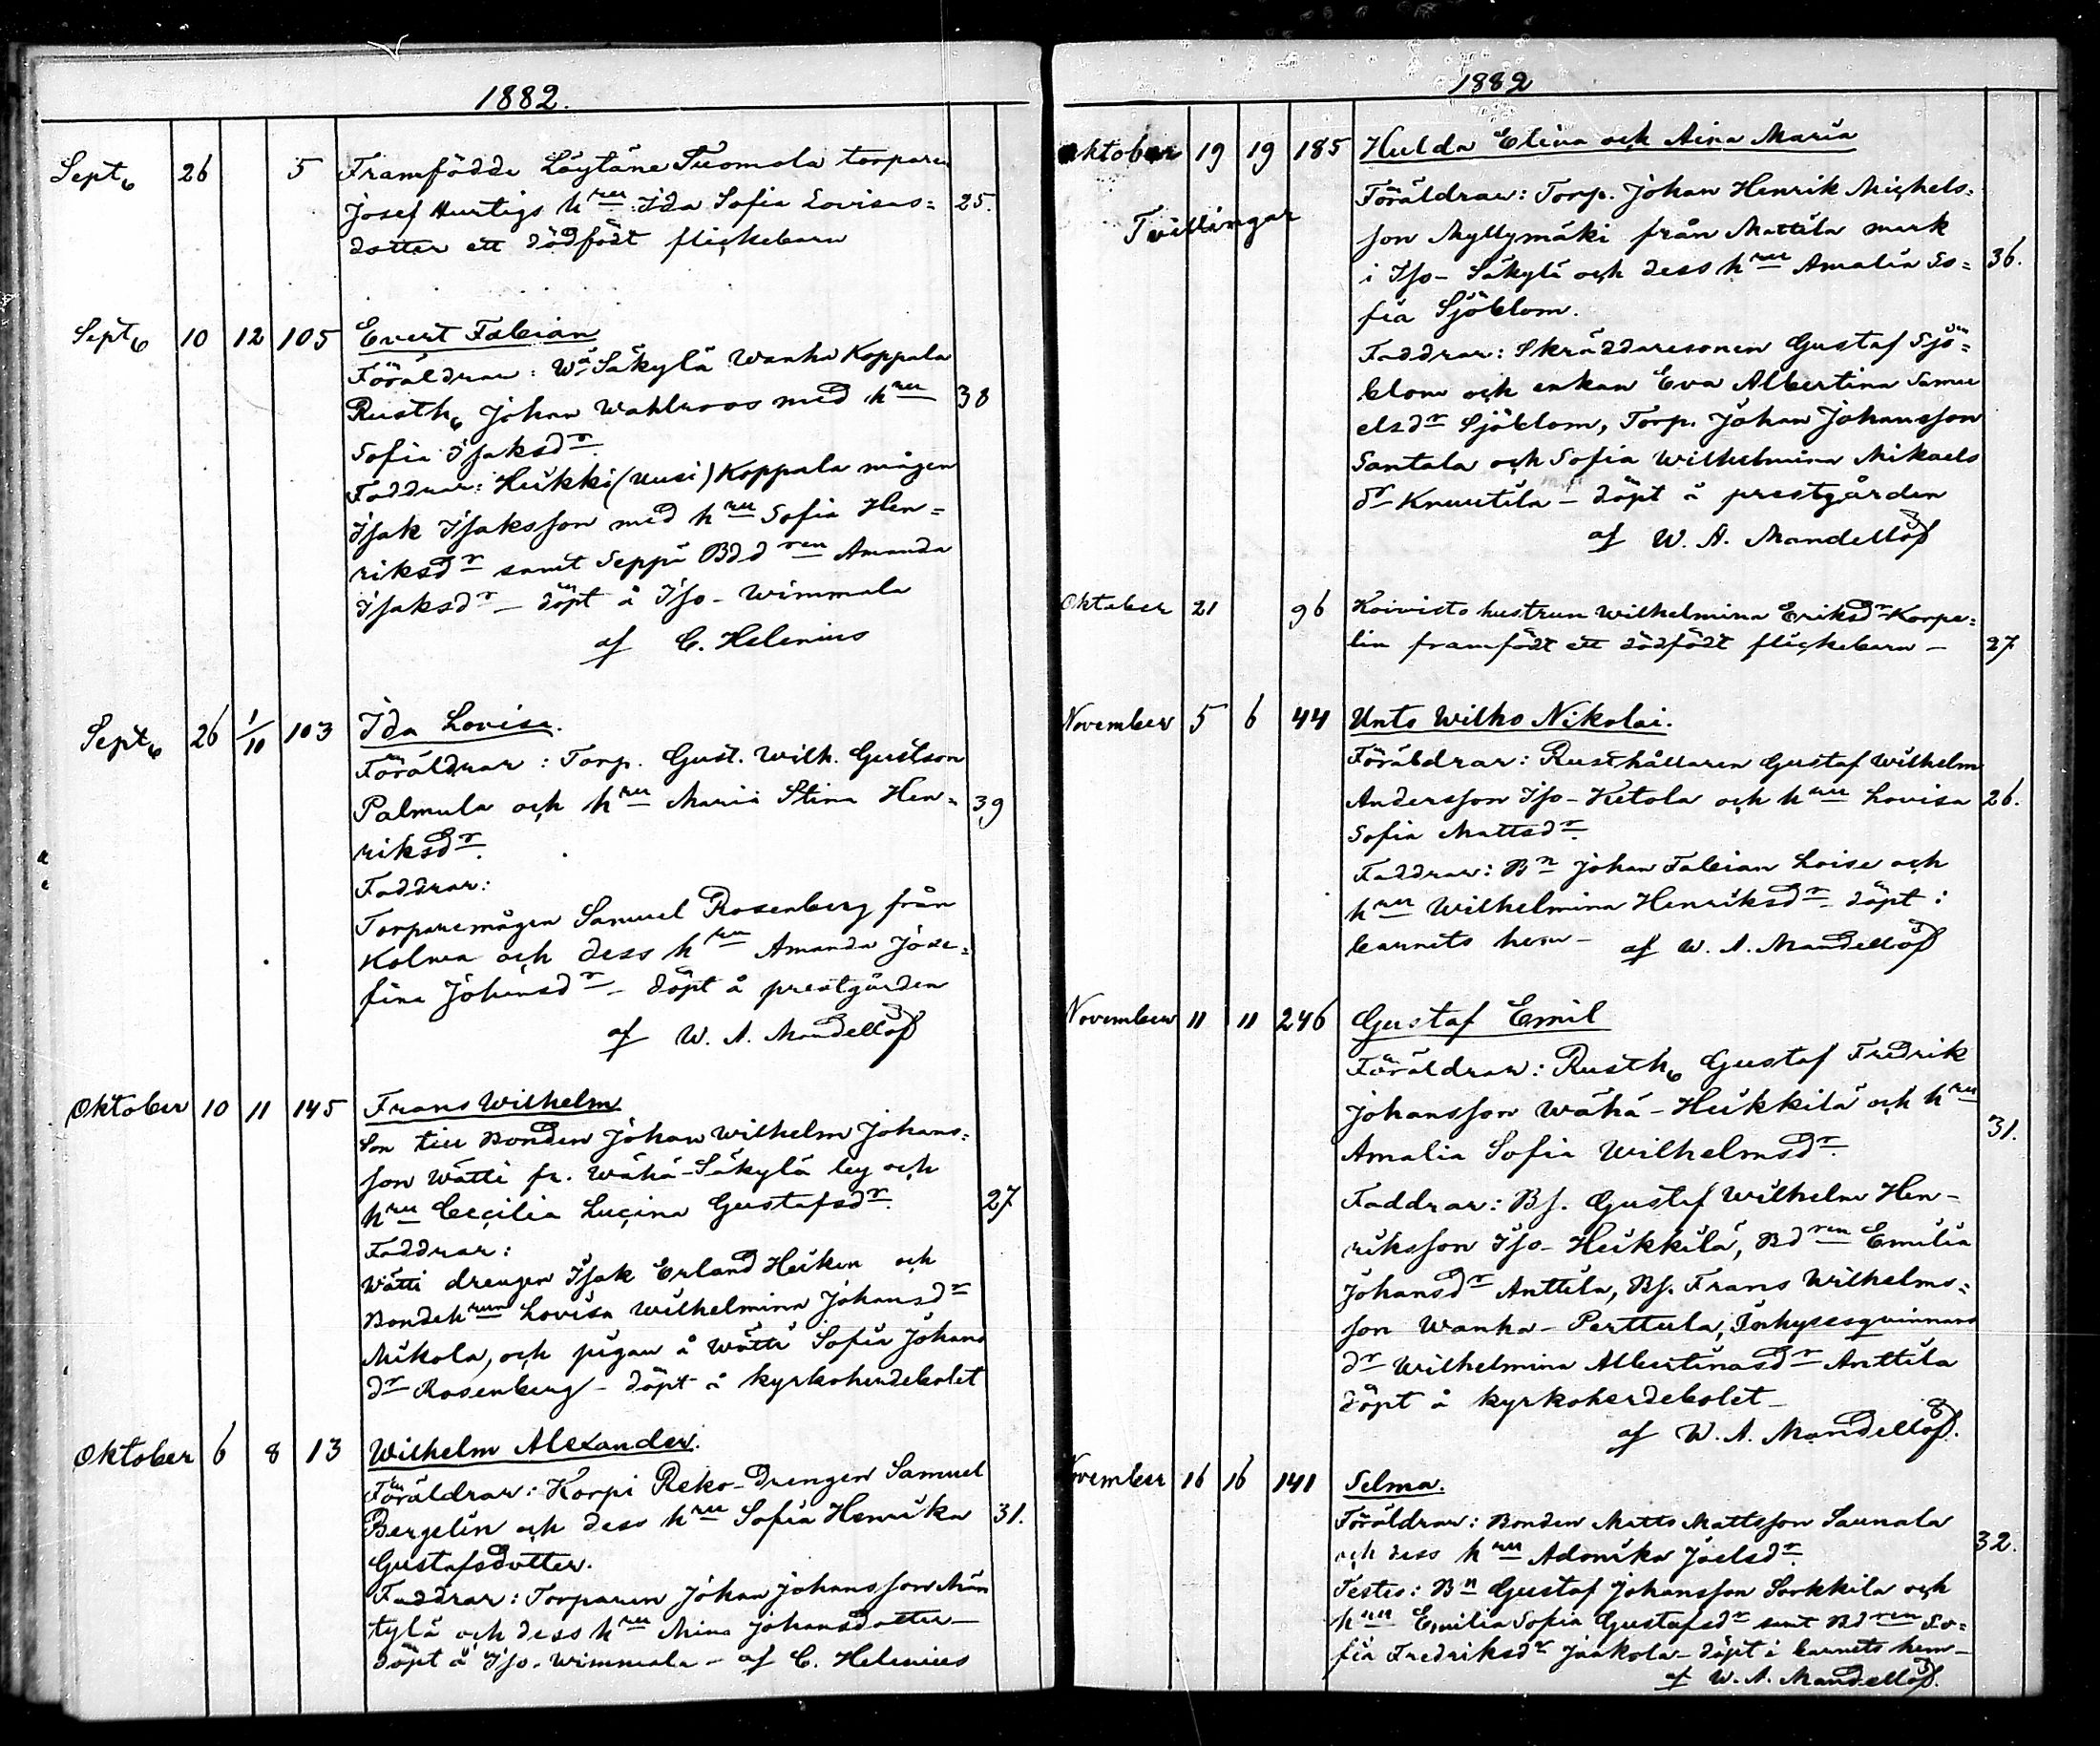 1882.
Sept. 26 5 Framfödde Löytäne Tuomola torparen
Josef Hurtigs hru Ida Sofia Lovisas= 25.
dotter ett dödfödt flickebarn
Sept. 10 12 105 Evert Fabian
Föräldrar: Wä Säkylä Wanha Koppala
Rusth. Johan Wahlroos med hru 38
Sofia Isaksdr.
Faddrar: Heikki (Uusi) Koppala mågen
Isak Isaksson med hru Sofia Hen=
riksdr samt Seppä Bddren Amanda
Isaksdr – döpt å Iso-Wimmala
af C. Helenius
Sept. 26 1/10 103 Ida Lovisa.
Föräldrar: Torp. Gust. Wilh. Gustson
Palmula och hru Maria Stina Hen= 39
riksdr.
Faddrar:
Torparemågen Samuel Rosenberg från
Kolma och dess hru Amanda Jose=
fina Johansdr – döpt å prestgården
af W. A. Mandellöf
Oktober 10 11 145 Frans Wilhelm
Son till Bonden Johan Wilhelm Johans=
son Wätti fr. Wähä-Säkylä by och
hru Cecilia Lucina Gustafsdr. 27
Faddrar:
Wätti drengen Isak Erland Heiken och
Bondehrun Lovisa Wilhelmina Johansdr
Mikola, och pigan å Wätti Sofia Johans
dr Rosenberg – döpt å kyrkoherdebolet
Oktober 6 8 13 Wilhelm Alexander.
Föräldrar: Korpi Reko-Drengen Samuel
Bergelin och dess hru Sofia Henrika 31.
Gustafsdotter.
Faddrar: Torparen Johan Johansson Män
tylä och dess hru Mina Johansdotter –
döpt å Iso-Wimmala – af C. Helenius
1882
Oktober 19 19 185 Hulda Elina och Aina Maria
Föräldrar: Torp. Johan Henrik Michels=
Tvillingar
son Myllymäki från Mattila mark
i Iso-Säkylä och dess hru Amalia So= 36.
fia Sjöblom.
Faddrar: Skräddaresonen Gustaf Sjö=
blom och enkan Eva Albertina Samu
elsdr Sjöblom, Torp. Johan Johansson
Santala och Sofia Wilhelmina Mikaels
dr Knuutila – döpt å prestgården
af W. A. Mandellöf
Oktober 21 96 Koivisto hustrun Wilhelmina Eriksdr Korpe=
lin framfödt ett dödfödt flickebarn – 27
November 5 6 44 Unto Wilho Nikolai.
Föräldrar: Rusthållaren Gustaf Wilhelm
Andersson Iso-Ketola och hru Lovisa 26.
Sofia Mattsdr.
Faddrar: Bn Johan Fabian Loise och
hru Wilhelmina Henriksdr döpt i
barnets hem – af W. A. Mandellöf
November 11 11 246 Gustaf Emil
Föräldrar: Rusth. Gustaf Fredrik
Johansson Wähä-Heikkilä och hru 31.
Amalia Sofia Wilhelmsdr.
Faddrar: Bs. Gustaf Wilhelm Hen-
riksson Iso-Heikkilä, Bdren Emilia
Johansdr Anttila, Bs. Frans Wilhelms=
son Wanha-Perttula, Inhysesqvinnans
dr Wilhelmina Albertinasdr Anttila
döpt å kyrkoherdebolet –
af W. A. Mandellöf.
November 16 16 141 Selma.
Föräldrar: Bonden Matts Mattsson Saunala
och dess hru Adamika Joelsdr. 32.
Testes: Bn Gustaf Johansson Sorkkila och
hrun Emilia Sofia Gustafsdr samt Bdren So=
fia Fredriksdr Jaakola – döpt i barnets hem –
af W. A. Mandellöf.